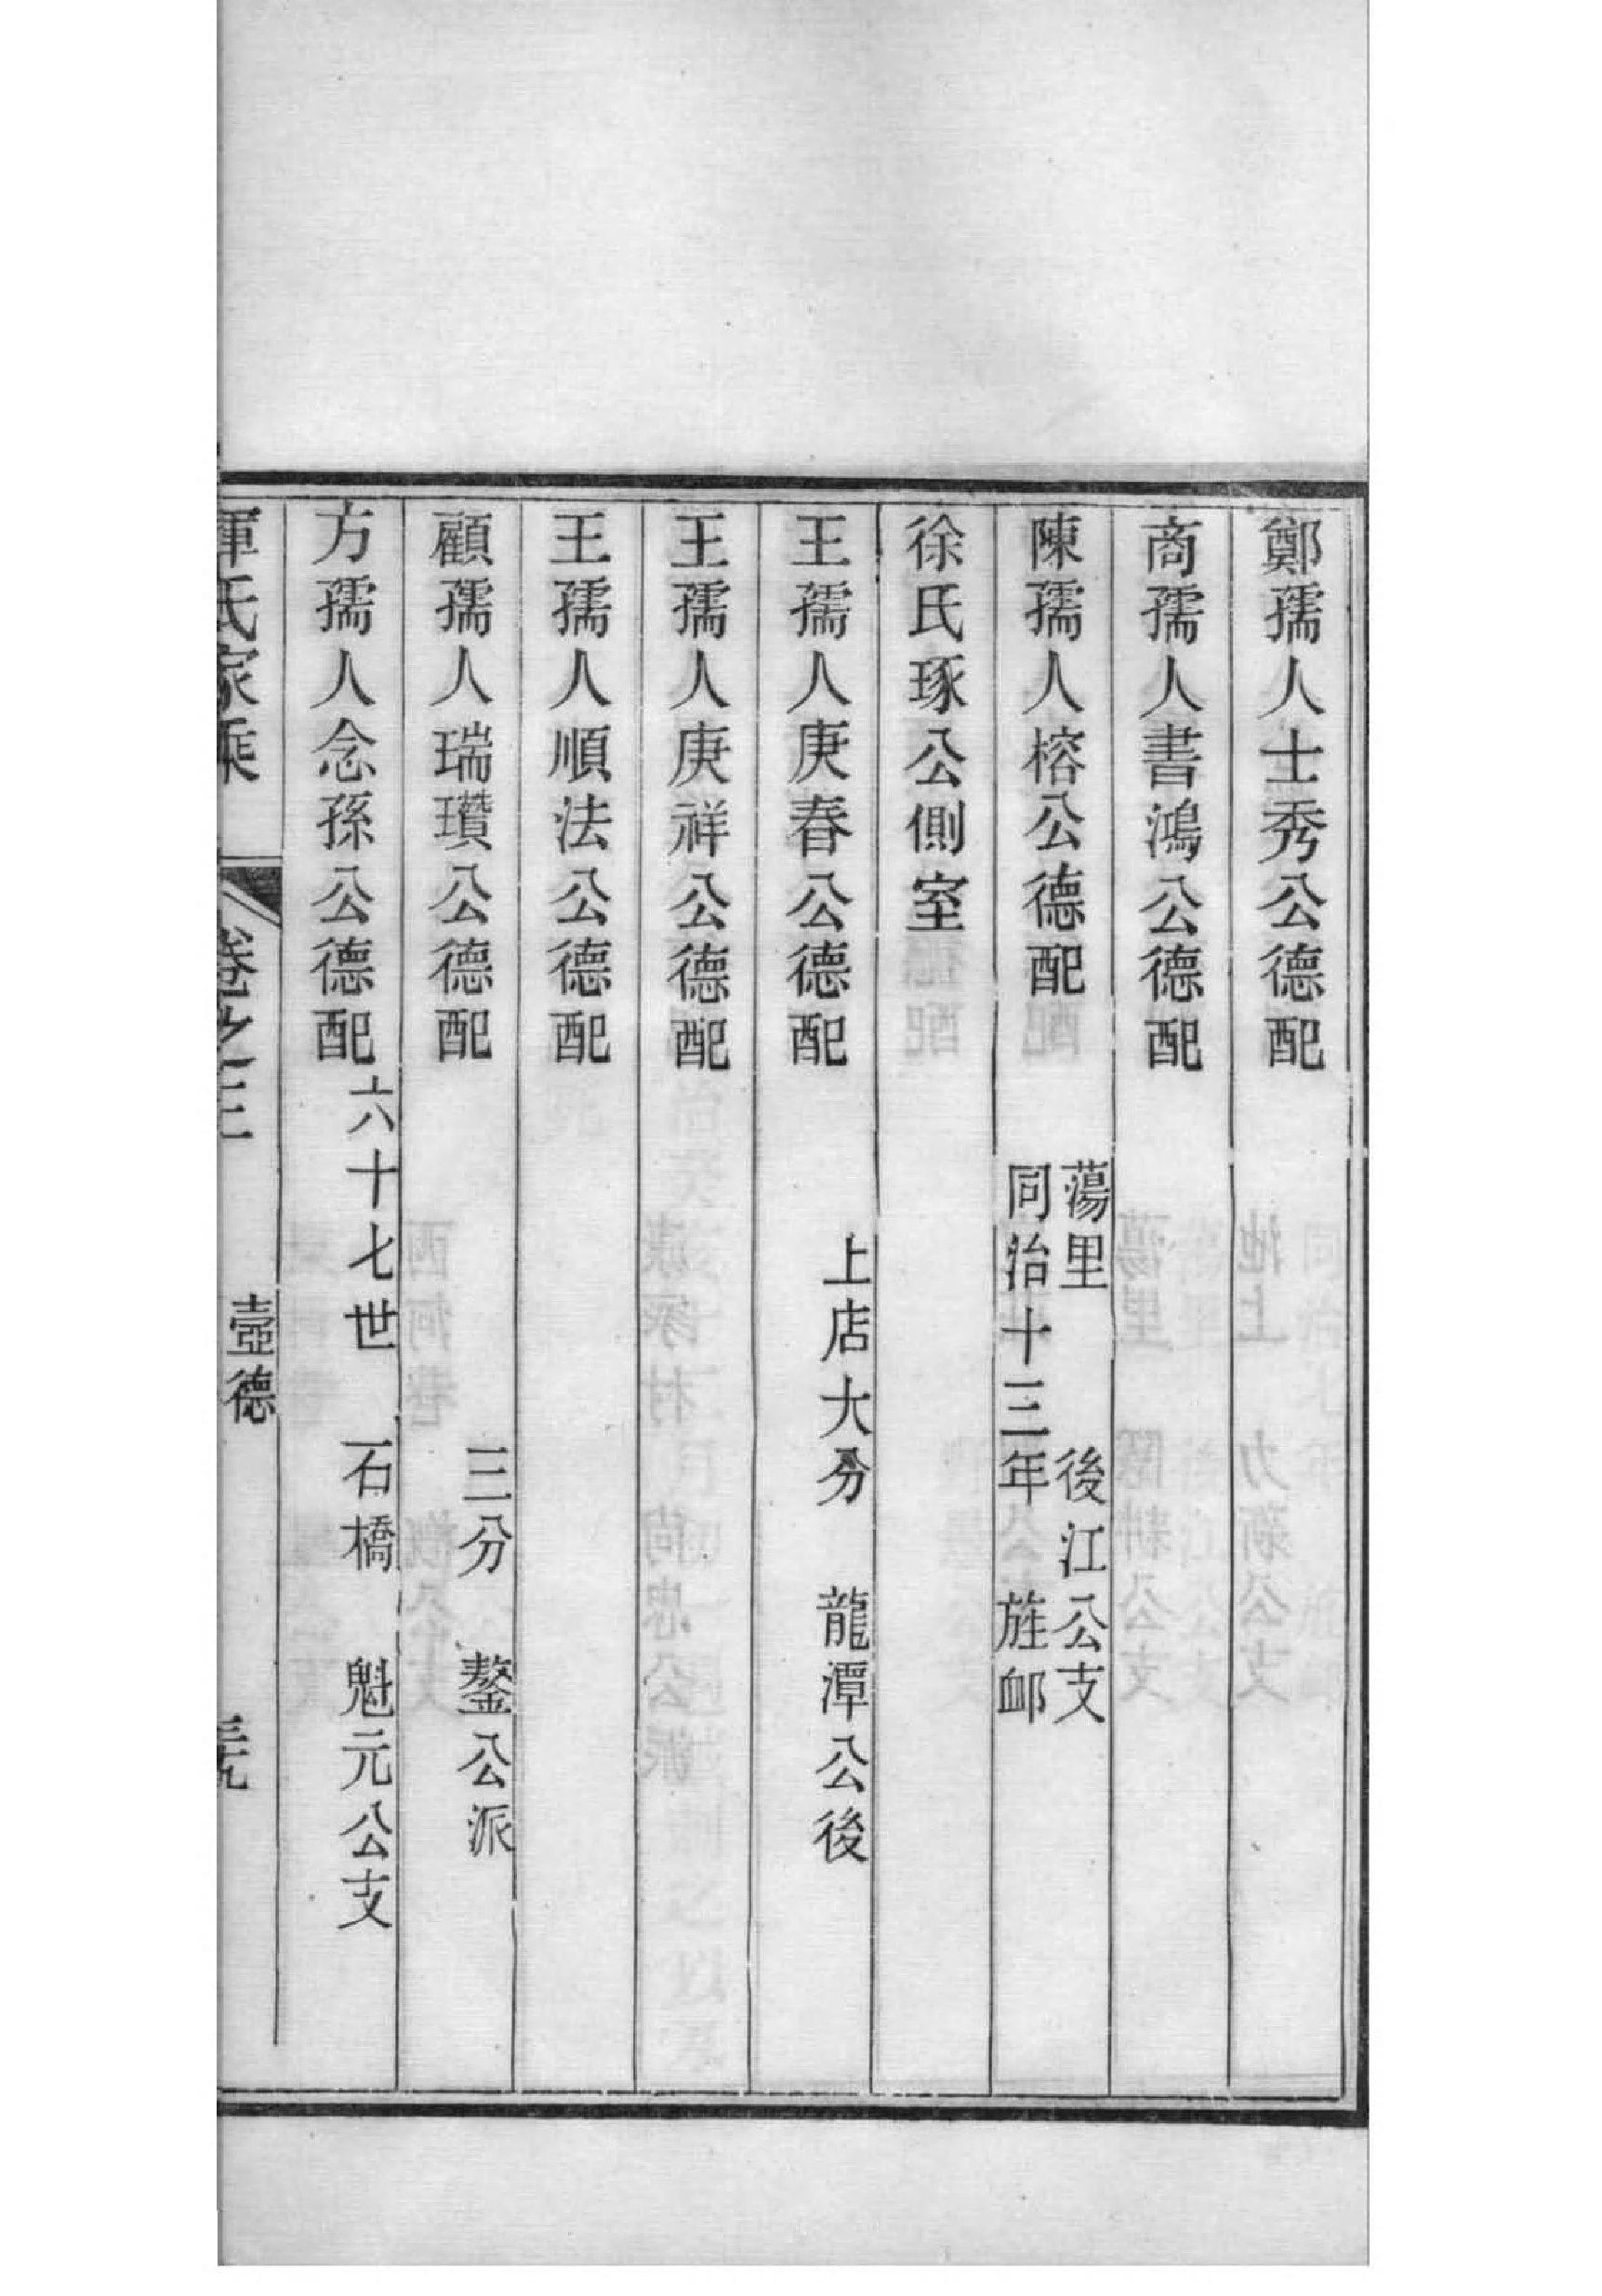 鄭孺人士秀公德配
商孺人書鴻公德配
陳孺人榕公德配 蕩里 後江公支
同治十三年 旌䘏
徐氏琢公側室
王孺人庚春公德配 上店大分 龍潭公後
王孺人庚祥公德配
王孺人順法公德配
顧孺人瑞瓚公德配 三分 鏊公派
方孺人念孫公德配 六十七世 石橋 魁元公支
惲氏家乘 卷之三 壼德